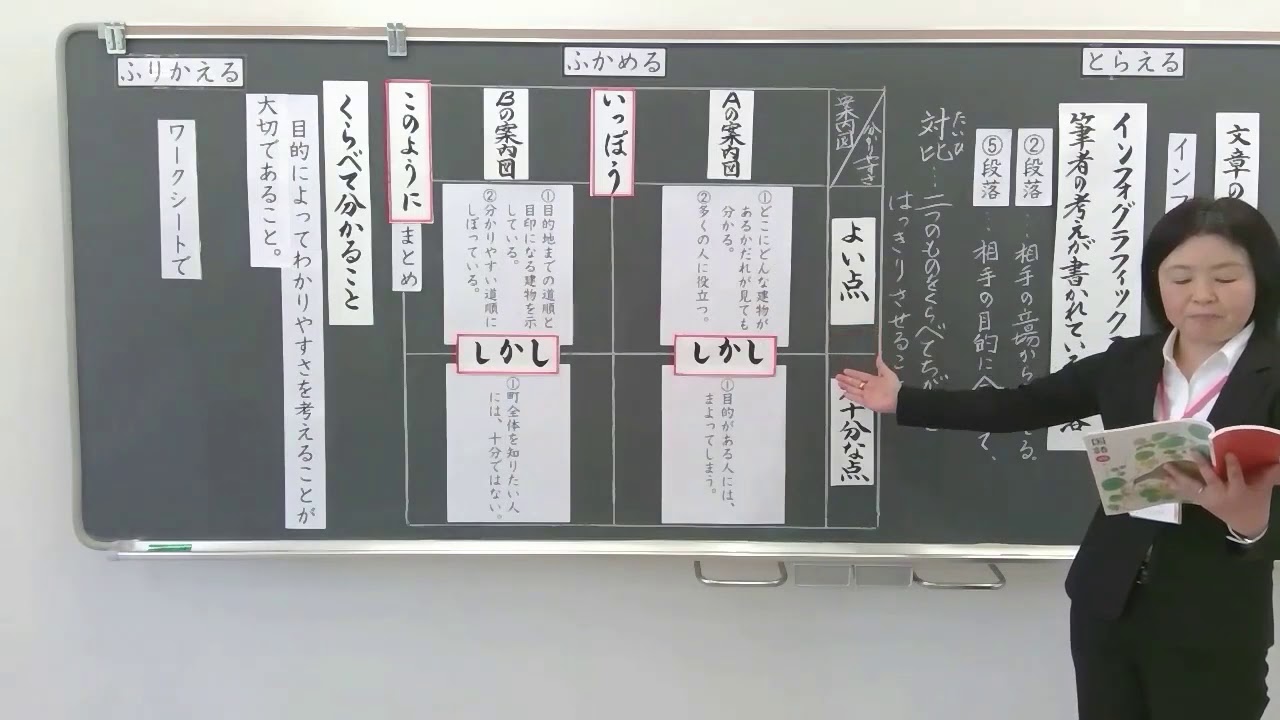 とらえる
文章の
イン
インフォグラフィック
筆者の考えが書かれている
②段落
…相手の立場から
る。
⑤段落
…相手の目的に
て、
たいひ
対比…二つのものをくらべてちが
はっきりさせるこ
ふかめる
分かりやすさ
案内図
よい点
十分な点
Aの案内図
①どこにどんな建物が
あるかだれが見ても
分かる。
②多くの人に役立つ。
しかし
①目的がある人には、
まよってしまう。
いっぽう
Bの案内図
①目的地までの道順と
目印になる建物を示
している。
②分かりやすい道順に
しぼっている。
しかし
①町全体を知りたい人
には、十分ではない。
このように
まとめ
ふりかえる
くらべて分かること
目的によってわかりやすさを考えることが
大切であること。
ワークシートで
国語